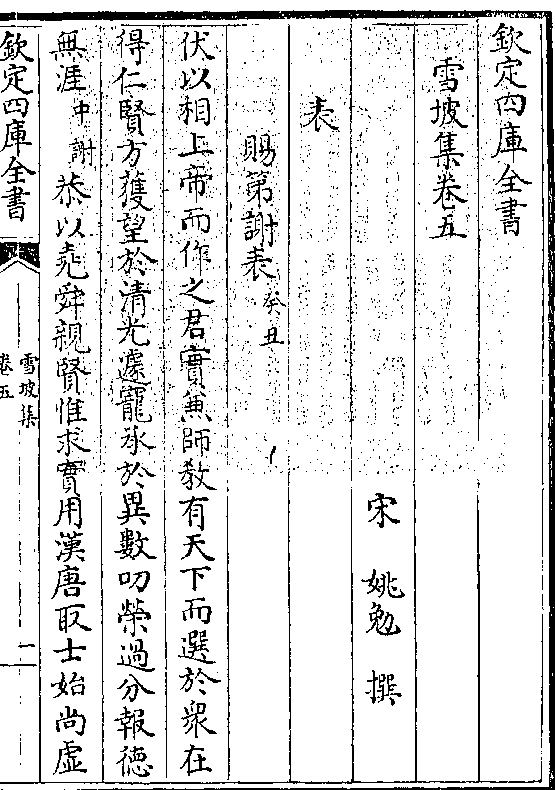 欽定四庫全書
雪坡集卷五
宋 姚勉 撰
表
賜第謝表癸丑
伏以相上帝而作之君實兼師教有天下而選於衆在
得仁賢方獲望於清光遽寵承於異數叨榮過分報德
無涯中謝恭以堯舜親賢惟求實用漢唐取士始尚虛
欽定四庫全書
雪坡集
卷五
一